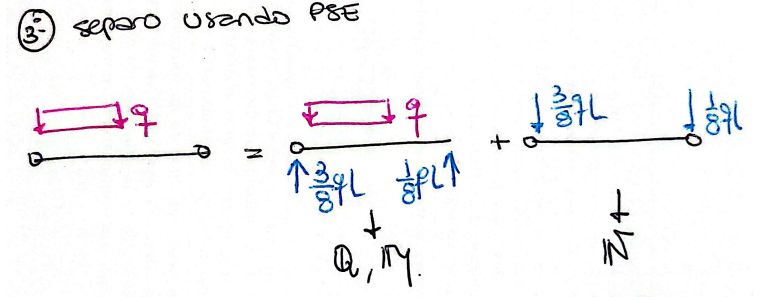 3- separo usando PSE
q = q + 3/8 qL 1/8 qL
↑ 3/8 qL 1/8 qL ↑
Q, M. N